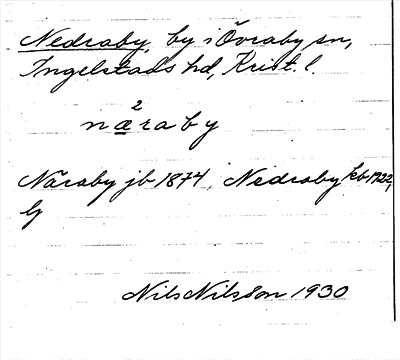 Nedraby, by i Övraby sn,
Ingelstads hd, Krist. l.
2
næraby
Näraby jb 1874, Nedraby kb 1922,
G
Nils Nilsson 1930